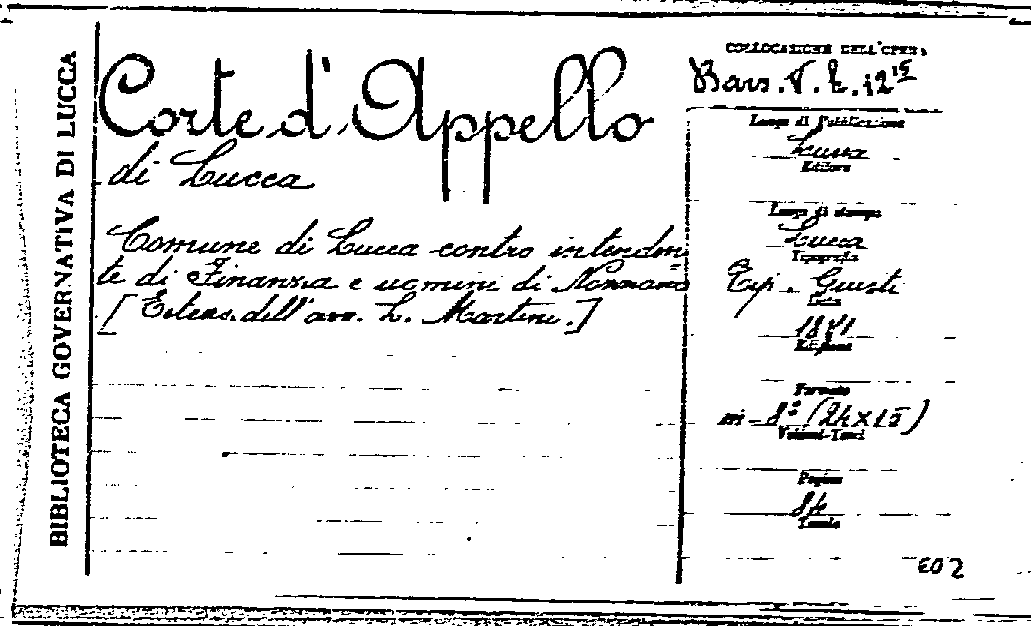 BIBLIOTECA GOVERNATIVA DI LUCCA
Corte d'Appello
di Lucca
Comune di Lucca contro intenden
te di Finanza e uomini di
[Estens. dell'avv. L. Martini.]
COLLOCAZIONE DELL'OPERA
Bars. V. E. 12
Luogo di Pubblicazione
Lucca
Editore
Luogo di stampa
Lucca
Tipografia
Tip. Giusti
Data
Edizione
Formato
in-8° (24x15)
Volumi-Tomi
Pagine
84
Tavole